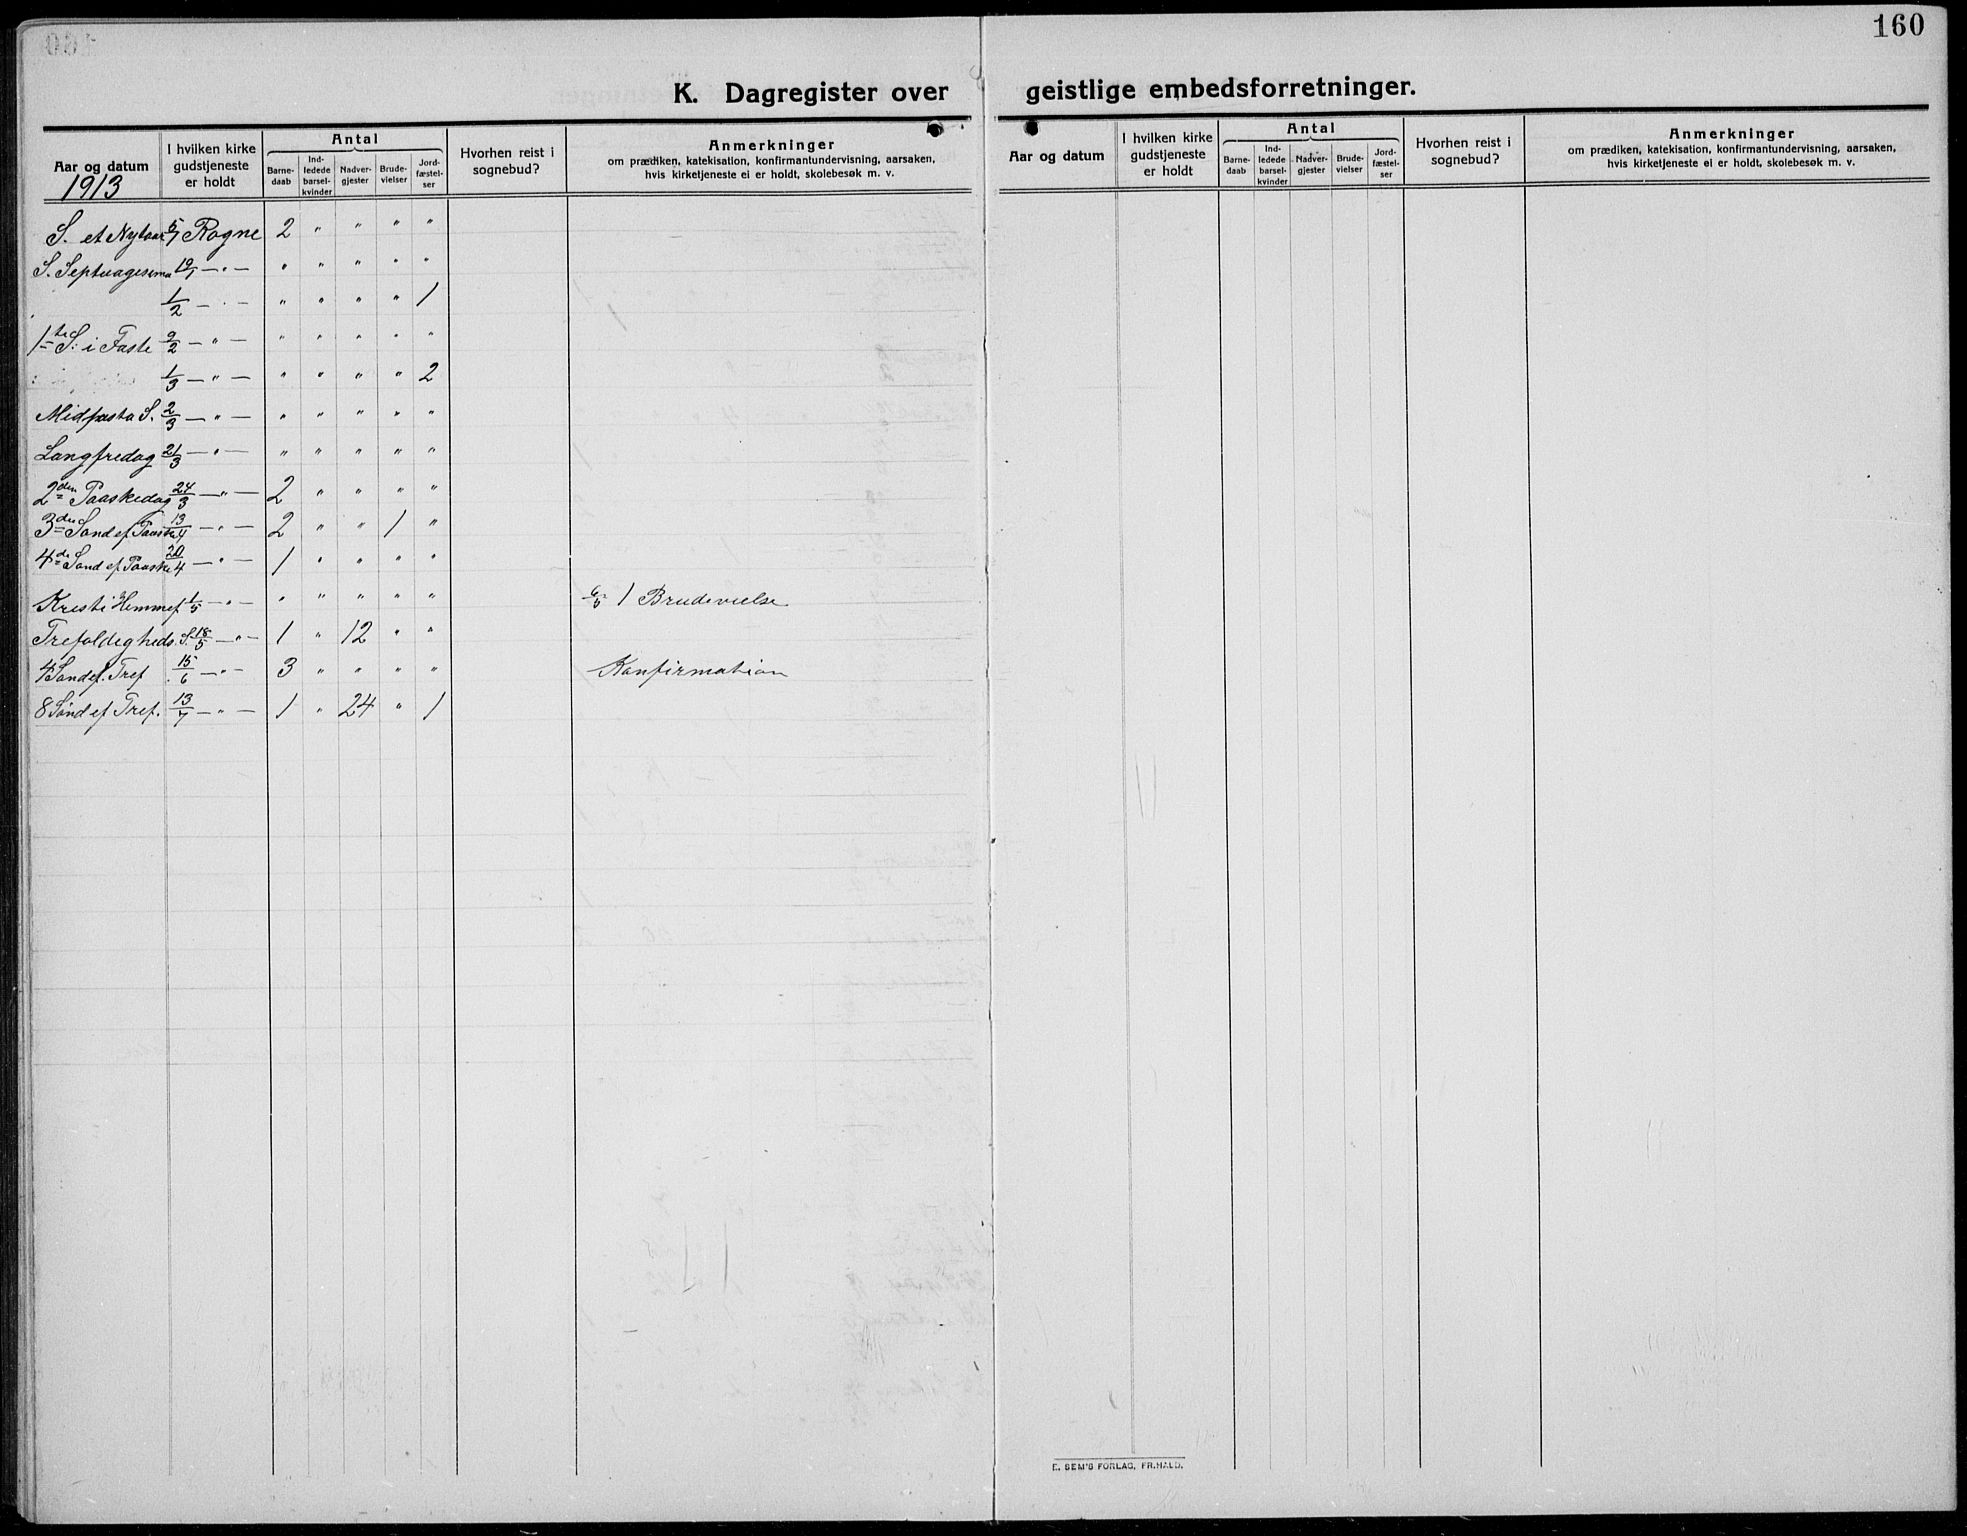 160
K. Dagregister over geistlige embedsforretninger.
Aar og datum
1913
I hvilken kirke gudstjeneste er holdt
Antal
Barne-daab
Ind-ledede barsel-kvinder
Nadver-gjester
Brude-vielser
Jord-fæstel-ser
Hvorhen reist i sognebud?
Anmerkninger
om prædiken, katekisation, konfirmantundervisning, aarsaken,
hvis kirketjeneste ei er holdt, skolebesøk m. v.
S. et Nytaar 5/1 Rogne 2 " " " "
S. Septuagesima 19/1 — " — " " " " "
1/2 — " — " " " " 1
1te S. i Faste 9/2 — " — " " " " "
1/3 — " — " " " " 2
Midfasta S. 2/3 — " — " " " " "
Langfredag 21/3 — " — " " " " "
2den Paaskedag 24/3 — " — 2 " " " "
3de Sønd ef Paaske 13/4 — " — 2 " " 1 "
4de Sønd ef Paaske 20/4 — " — 1 " " " "
Kristi Himmef 1/5 — " — " " " " " 6/5 1 Brudevielse
Trefoldigheds S. 18/5 — " — 1 " 12 " "
4 Sønd ef. Tref 15/6 — " — 3 " " " " Konfirmation
8 Sønd ef Tref. 13/7 — " — 1 " 24 " 1
Aar og datum
I hvilken kirke gudstjeneste er holdt
Antal
Barne-daab
Ind-ledede barsel-kvinder
Nadver-gjester
Brude-vielser
Jord-fæstel-ser
Hvorhen reist i sognebud?
Anmerkninger
om prædiken, katekisation, konfirmantundervisning, aarsaken,
hvis kirketjeneste ei er holdt, skolebesøk m. v.
E. SEM'S FORLAG, FR.HALD.